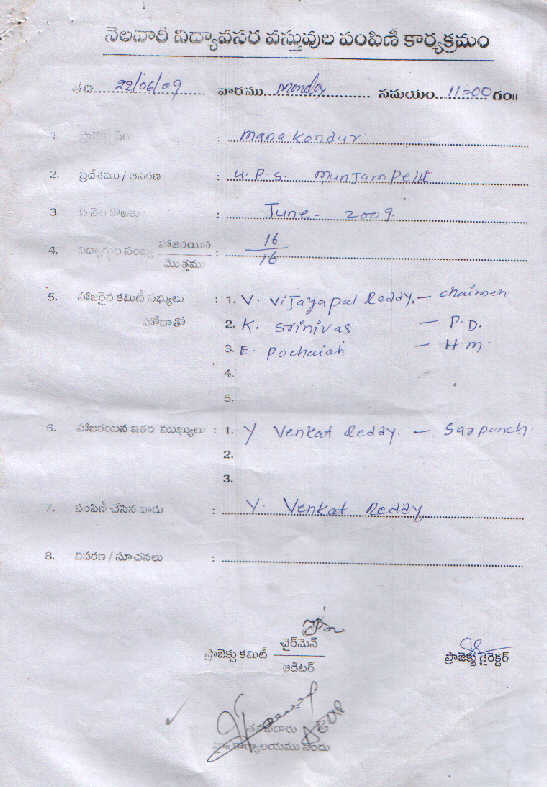 నెలవారీ విద్యావసర వస్తువుల పంపిణీ కార్యక్రమం
తేది 22/06/09 వారము Monday సమయం 11-00 గం॥
1. : Manakondur
2. ప్రదేశము / వివరణ : U.P.S. Munjampelli
3 : June - 2009
4. విద్యార్థుల సంఖ్య హాజరయిన : 16
మొత్తము 16
5. హాజరైన కమిటీ సభ్యులు : 1. V. Vijayapal Reddy. - Chairmen
హోదాతో 2. K. Srinivas - P.D.
3. E. Pochaiah - H.M.
4.
5.
6. హాజరయిన ఇతర ముఖ్యులు : 1. Y Venkat Reddy. - Sarpanch.
2.
3.
7. పంపిణీ చేసిన వారు : Y. Venkat Reddy
8. వివరణ / సూచనలు :
ప్రాజెక్టు కమిటీ చైర్‌మెన్ ప్రాజెక్టు డైరెక్టర్